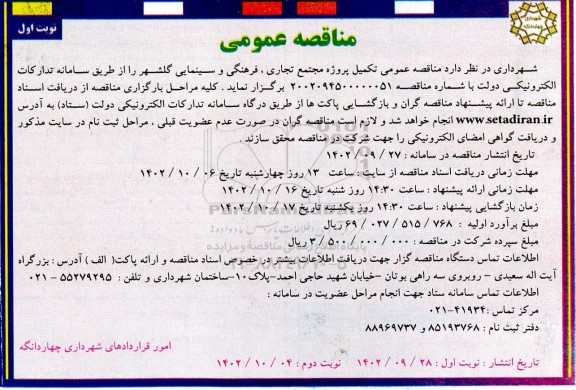 نوبت اول
شهرداری چهاردانگه
مناقصه عمومی
شهرداری در نظر دارد مناقصه عمومی تکمیل پروژه مجتمع تجاری ، فرهنگی و سینمایی گلشهر را از طریق سامانه تدارکات
الکترونیکی دولت با شماره مناقصه ۲۰۰۲۰۹۴۵۰۰۰۰۰۰۵۱ برگزار نماید . کلیه مراحل برگزاری مناقصه از دریافت اسناد
مناقصه تا ارائه پیشنهاد مناقصه گران و بازگشایی پاکت ها از طریق درگاه سامانه تدارکات الکترونیکی دولت (ستاد) به آدرس
www.setadiran.ir انجام خواهد شد و لازم است مناقصه گران در صورت عدم عضویت قبلی ، مراحل ثبت نام در سایت مذکور
و دریافت گواهی امضای الکترونیکی را جهت شرکت در مناقصه محقق سازند .
تاریخ انتشار مناقصه در سامانه : ۲۷ / ۰۹ / ۱۴۰۲
مهلت زمانی دریافت اسناد مناقصه از سایت : ساعت ۱۳ روز چهارشنبه تاریخ ۰۶ / ۱۰ / ۱۴۰۲
مهلت زمانی ارائه پیشنهاد : ساعت ۱۴:۳۰ روز شنبه تاریخ ۱۶ / ۱۰ / ۱۴۰۲
زمان بازگشایی پیشنهاد : ساعت ۱۴:۳۰ روز یکشنبه تاریخ ۱۷ / ۱۰ / ۱۴۰۲
مبلغ برآورد اولیه : ۷۶۸ / ۵۱۵ / ۰۲۷ / ۶۹ ریال
مبلغ سپرده شرکت در مناقصه : ۰۰۰ / ۰۰۰ / ۵۰۰ / ۳ ریال
اطلاعات تماس دستگاه مناقصه گزار جهت دریافت اطلاعات بیشتر درخصوص اسناد مناقصه و ارائه پاکت( الف ) آدرس : بزرگراه
آیت اله سعیدی - روبروی سه راهی بوتان -خیابان شهید حاجی احمد-پلاک۱۰-ساختمان شهرداری و تلفن : ۵۵۲۷۹۲۹۵ - ۰۲۱
اطلاعات تماس سامانه ستاد جهت انجام مراحل عضویت در سامانه :
مرکز تماس :۴۱۹۳۴-۰۲۱
دفتر ثبت نام : ۸۵۱۹۳۷۶۸ و ۸۸۹۶۹۷۳۷
امور قراردادهای شهرداری چهاردانگه
تاریخ انتشار : نوبت اول : ۲۸ / ۰۹ / ۱۴۰۲ نوبت دوم : ۰۴ / ۱۰ / ۱۴۰۲